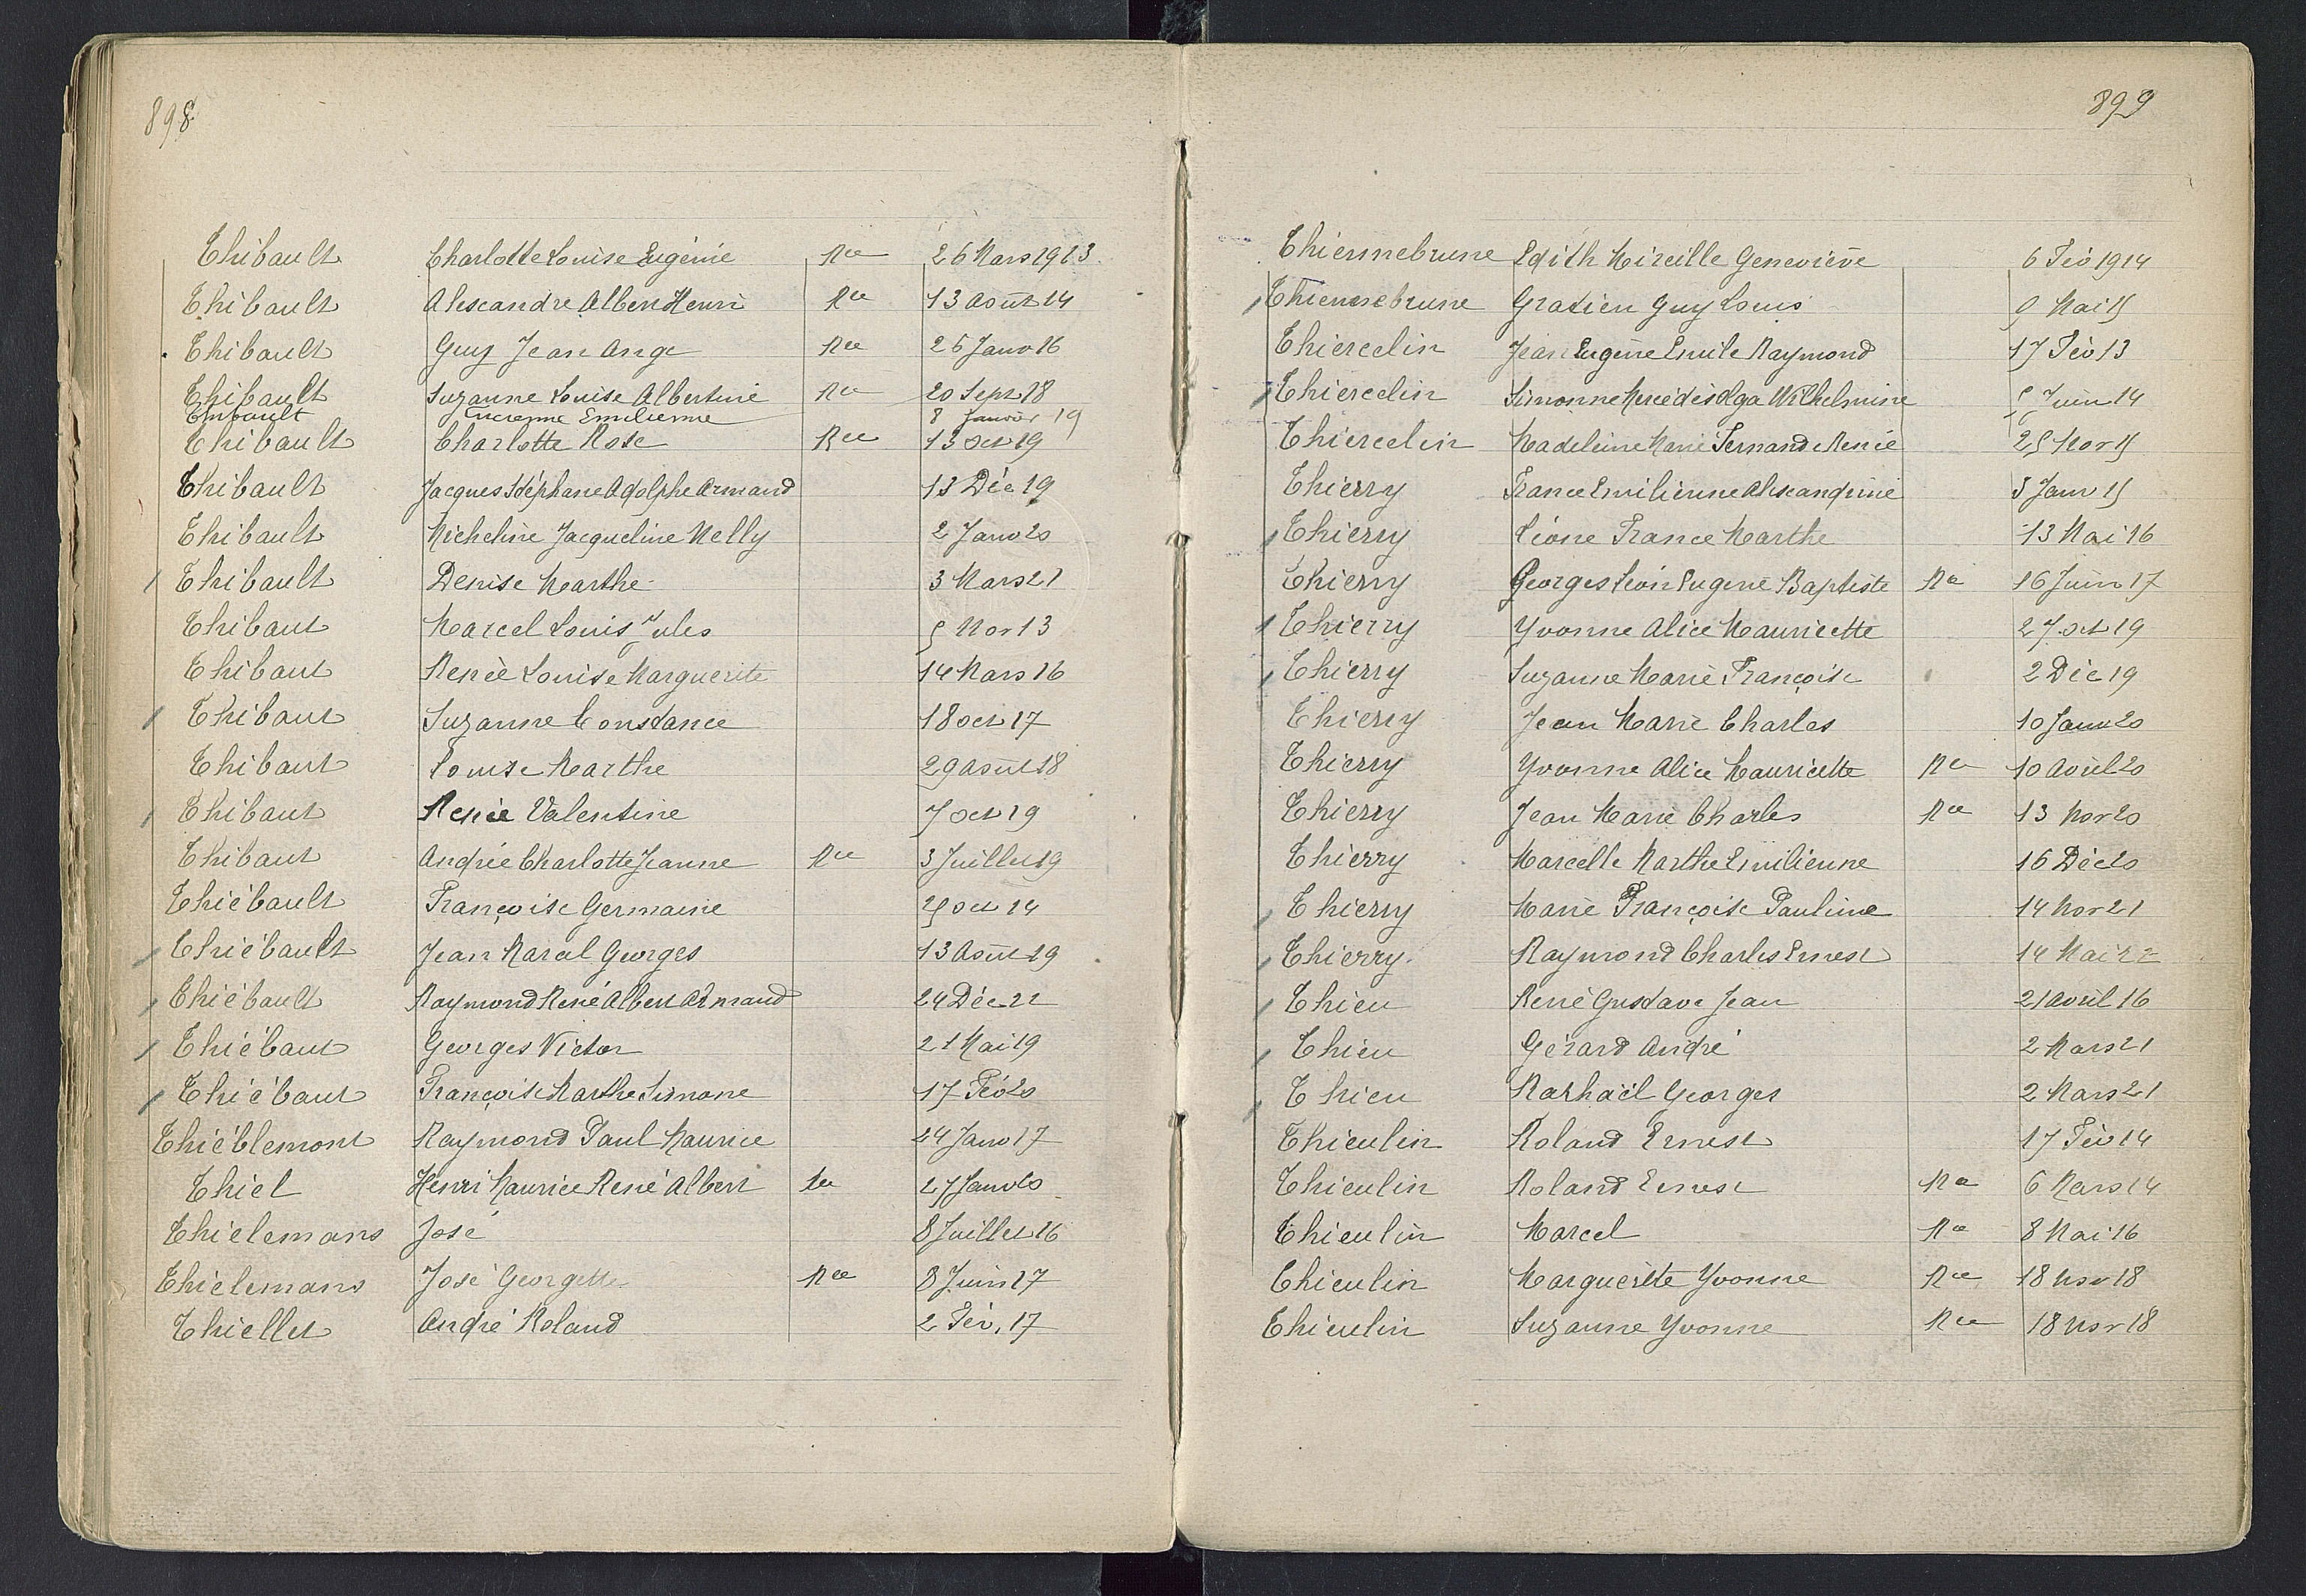 898
Thibault Charlotte Louise Eugénie Rce 26 Mars 1913
Thibault Alexandre Albert Henri Rce 13 Août 14
Thibault Guy Jean Ange Rce 26 Janv 16
Thibault Suzanne Louise Albertine Rce 20 Sept 18
Thibault Lucienne Emilienne 8 Janvier 19
Thibault Charlotte Rose Rce 13 Oct 19
Thibault Jacques Stéphane Adolphe Armand 13 Déc 19
Thibault Micheline Jacqueline Nelly 2 Janv 20
Thibault Denise Marthe 3 Mars 21
Thibaut Marcel Louis Jules 5 Nov 13
Thibaut Renée Louise Marguerite 14 Mars 16
Thibaut Suzanne Constance 18 Oct 17
Thibaut Louise Marthe 29 Août 18
Thibaut Renée Valentine 7 Oct 19
Thibaut Andrée Charlotte Jeanne Rce 3 Juillet 19
Thiébault Françoise Germaine Oct 14
Thiébault Jean Marcel Georges 13 Août 19
Thiébault Raymond René Albert Armand 24 Déc 22
Thiébaut Georges Victor 21 Mai 19
Thiébaut Françoise Marthe Simone 17 Fév 20
Thiéblemont Raymond Paul Maurice 24 Janv 17
Thiel Henri Maurice René Albert Rce 27 Janv 20
Thielemans José 8 Juillet 16
Thielemans José Georgette Rce 8 Juin 17
Thiellet André Roland 2 Fév. 17
899
Thiennebrune Edith Mireille Geneviève 6 Fév 1914
Thiennebrune Gratien Guy Louis 9 Mai 15
Thiercelin Jean Eugène Emile Raymond 17 Fév 13
Thiercelin Simonne Mercédès Olga Wilhelmine 5 Juin 14
Thiercelin Madeleine Marie Fernande Renée 25 Nov 15
Thierry France Emilienne Alexandrine 3 Janv 15
Thierry Léone France Marthe 13 Mai 16
Thierry Georges Léon Eugène Baptiste Rce 16 Juin 17
Thierry Yvonne Alice Mauricette 27 Oct 19
Thierry Suzanne Marie Françoise 2 Déc 19
Thierry Jean Marie Charles 10 Janv 20
Thierry Yvonne Alice Mauricette Rce 10 Avril 20
Thierry Jean Marie Charles Rce 13 Nov 20
Thierry Marcelle Marthe Emilienne 16 Déc 20
Thierry Marie Françoise Pauline 14 Nov 21
Thierry Raymond Charles Ernest 14 Mai 22
Thieu René Gustave Jean 21 Avril 16
Thieu Gérard André 2 Mars 21
Thieu Raphaël Georges 2 Mars 21
Thieulin Roland Ernest 17 Fév 14
Thieulin Roland Ernest Rce 6 Mars 14
Thieulin Marcel Rce 8 Mai 16
Thieulin Marguerite Yvonne Rce 18 Nov 18
Thieulin Suzanne Yvonne Rce 18 Nov 18